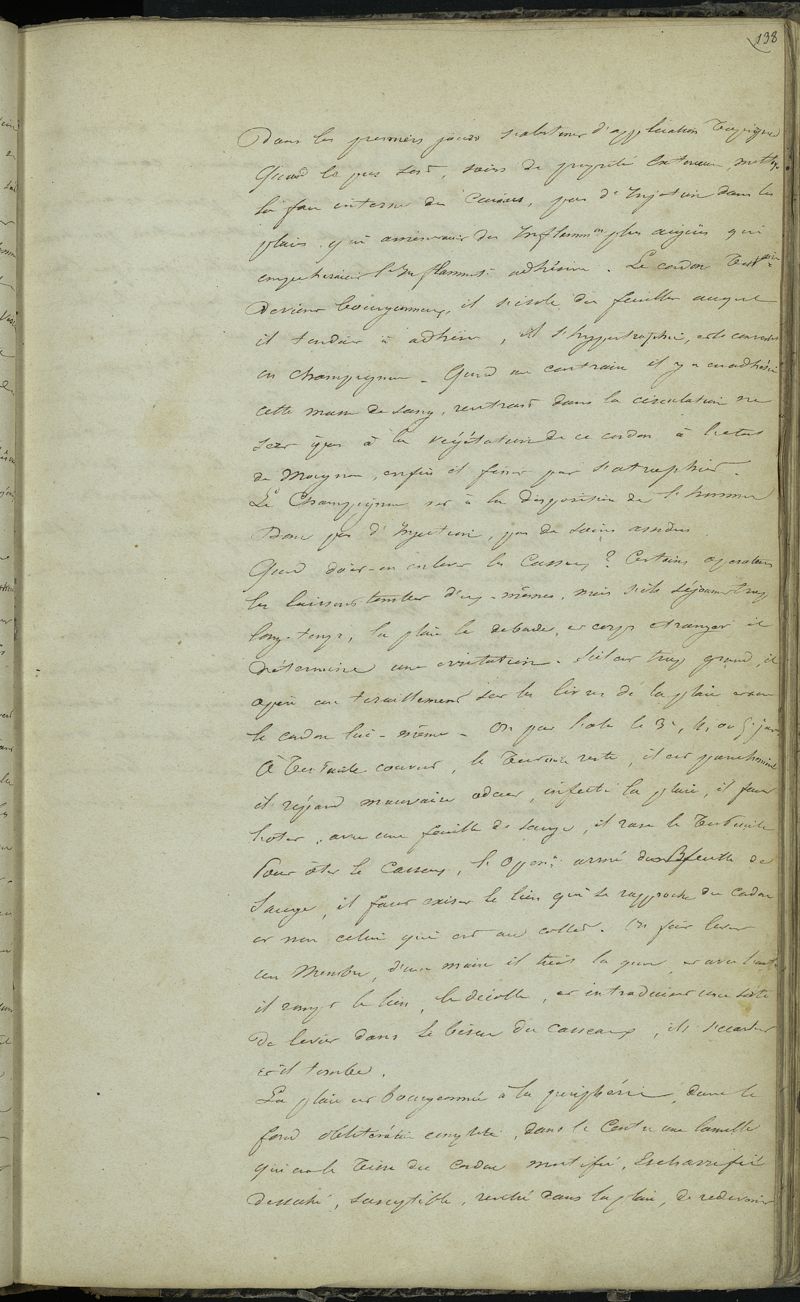 138
Dans les premiers jours s'abstenir d'application Topiques
Quand le pus sort, soins de propreté extérieurs, nettoy
la face interne des Cuisses, pas d'Injection dans les
plaies qui amèneraient des Inflammon plus aigües qui
empêcheraient l'Inflammt adhésive. Le cordon Test
Devient bourgeonneux, il s'isole du feuillet auquel
il tendait à adhérer, il s'hypertrophie, et se convertit
en champignon - Quand au contraire il y a eu adhésion
cette masse de sang, rentrant dans la circulation ne
sert pas à la végétation de ce cordon à l'état
de Moignon, enfin il finit par s'atrophier.
Le Champignon est à la disposition de l'homme
Donc pas d'Injection, pas de soins assidus.
Quand doit-on enlever les Casseaux? Certains opérateurs
les laissent tomber d'eux-mêmes, mais s'ils séjournent trop
longtemps, la plaie le déborde, et corps étranger il
détermine une irritation. S'il est trop grand, il
opère un tiraillement sur les lèvres de la plaie et sur
le cordon lui-même - On peut l'oter le 3e, 4, ou 5e jour
A Testicule couvert, le Testicule reste, il est parcheminé
il répand mauvaise odeur, infecte la plaie, il faut
l'oter, avec une feuille de sauge, il rase le Testicule
Pour ôter le Casseau, l'opért armé de feuille de
Sauge, il faut exiser le lien qui se rapproche du cordon
et non celui qui est au collet. On fait lever
un Membre, d'une main il tient la queue, et avec l'autre
il rompt le lien, le décolle, et introduisant une sorte
de levier dans le biseau du casseaux, ils s'écartent
et il tombe.
La plaie est bourgeonnée à la périphérie, dans le
fond oblitération complète, dans le Centre une lamelle
qui est le Tissu du cordon mortifié, Escharrifié
desséché, susceptible, rentré dans la plaie, de redevenir